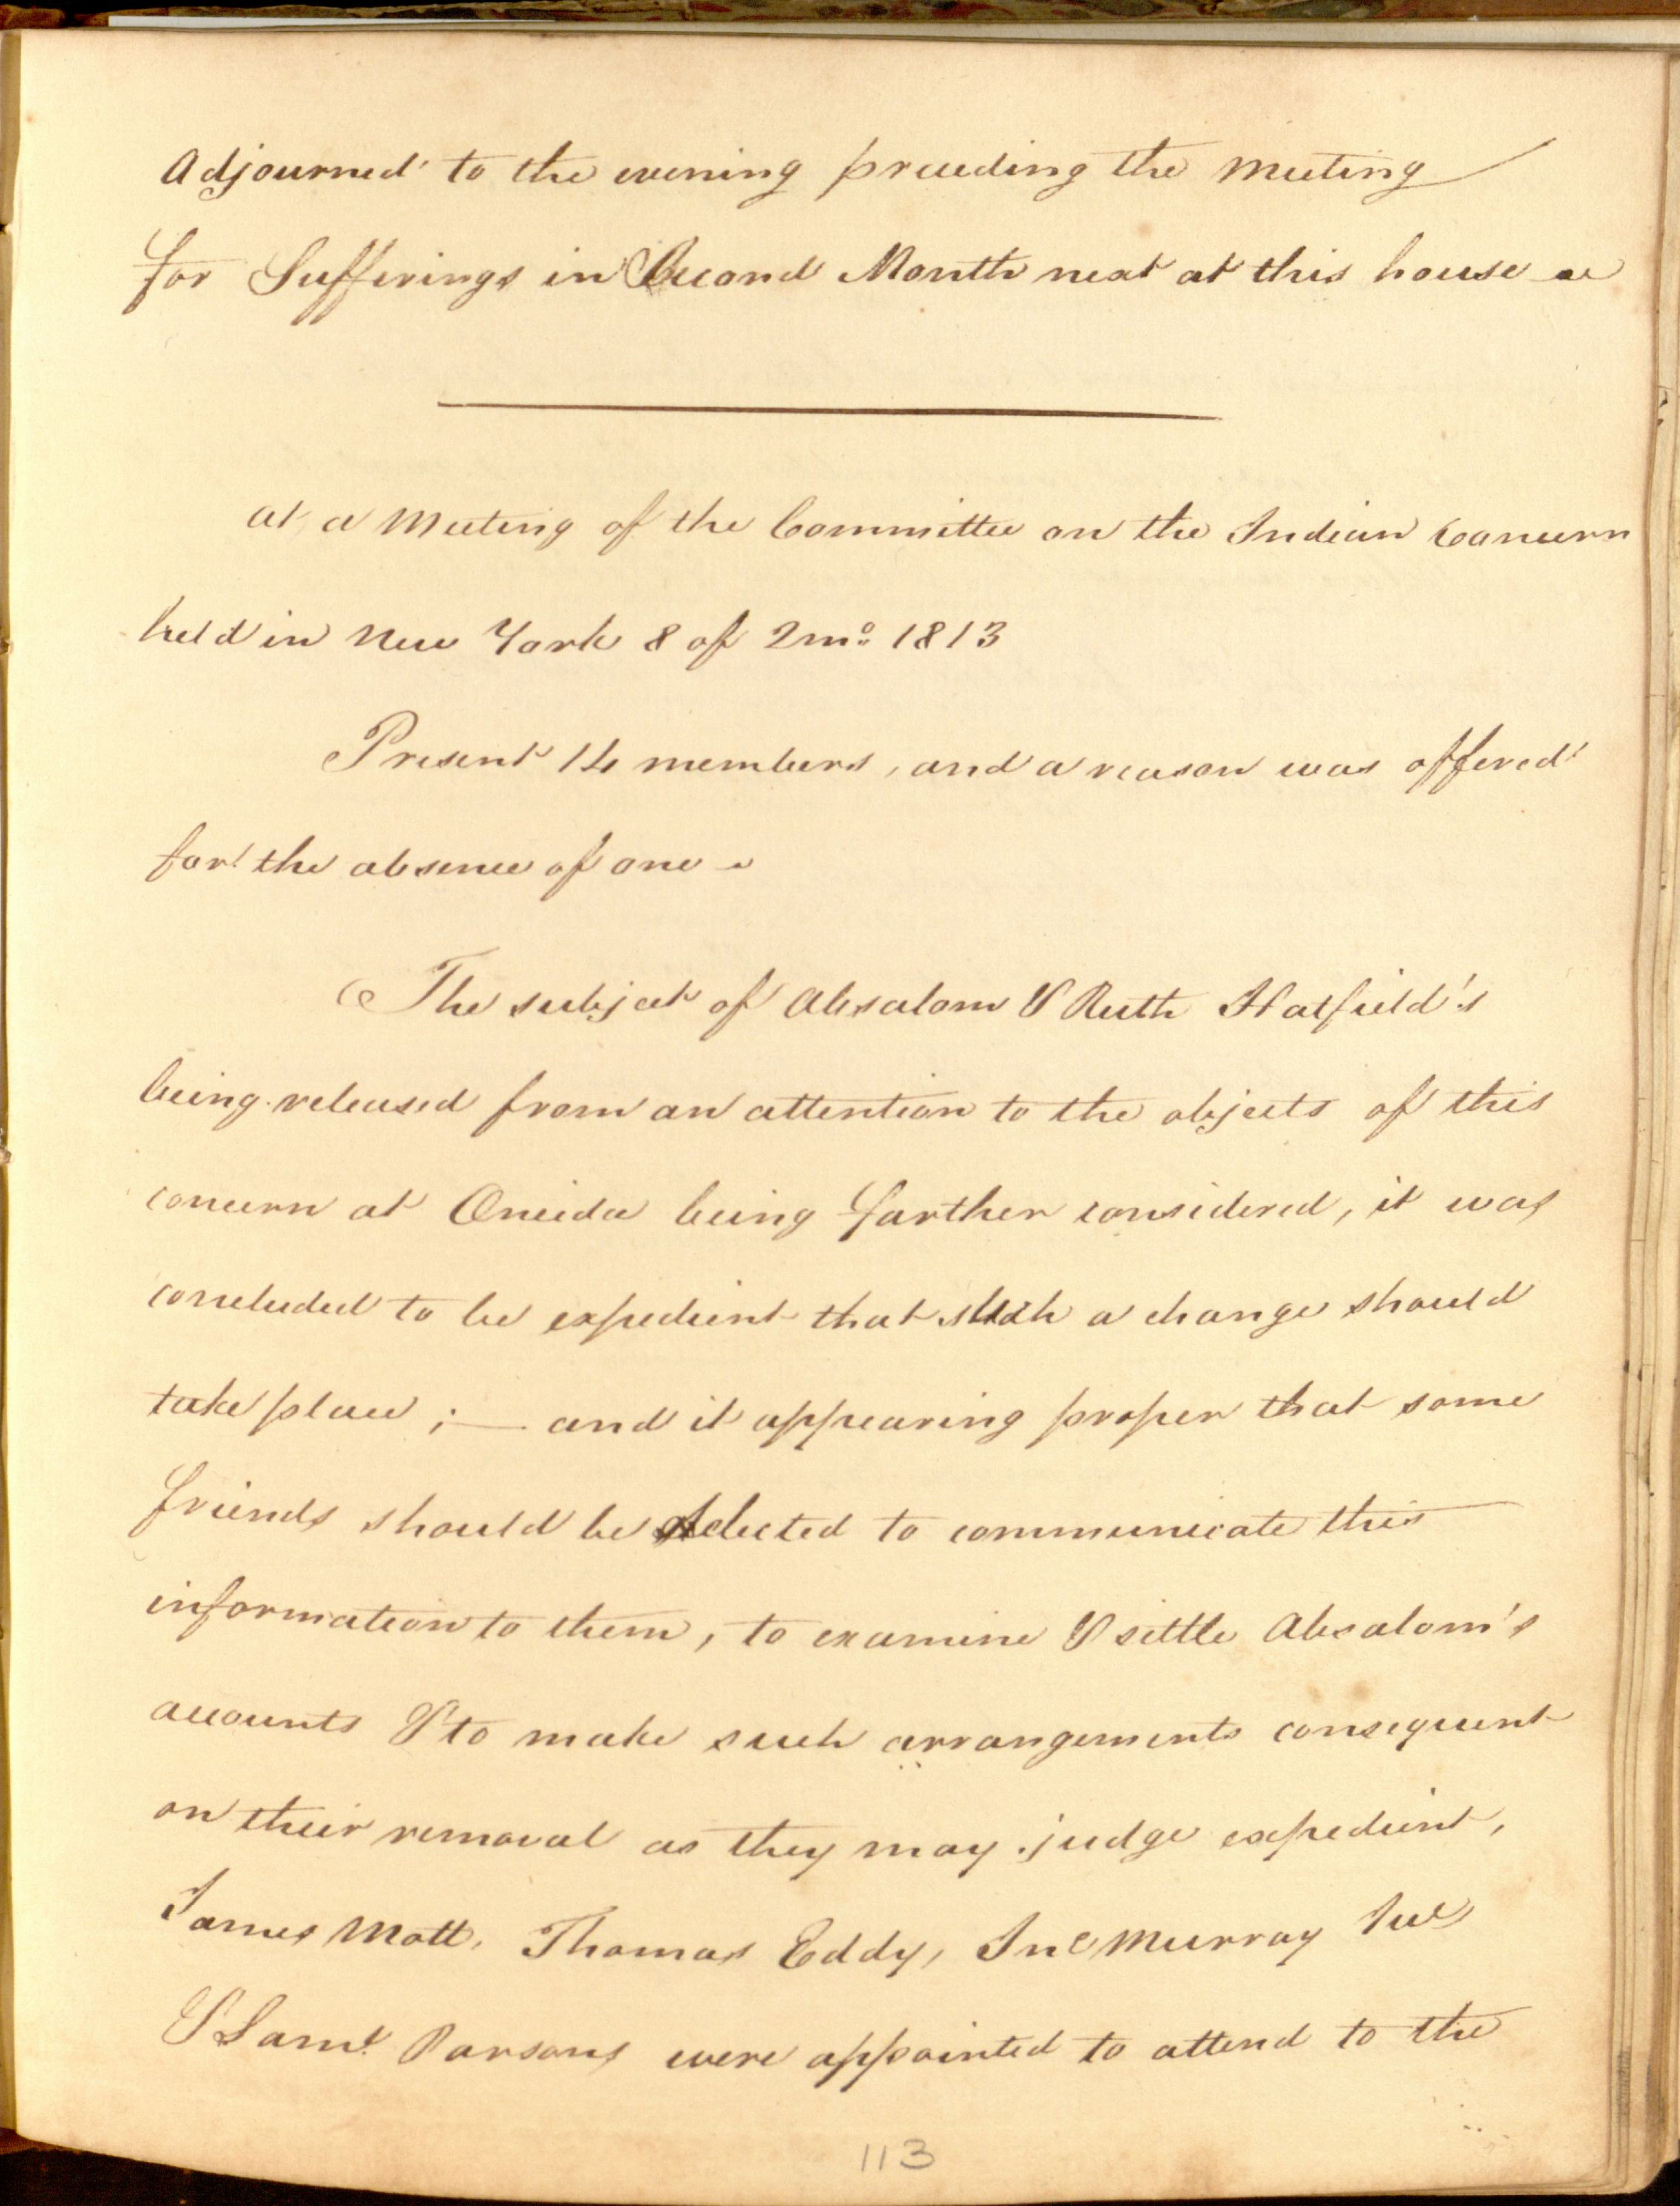 Adjourned to the evening preceding the Meeting
for Sufferings in Second Month next at this house
at a Meeting of the Committee on the Indian Concern
held in New York 8 of 2mo. 1813
Present 14 members, and a reason was offered
for the absence of one
The subject of Absalom & Ruth Hatfield's
being released from an attention to the objects of this
concern at Oneida being farther considered, it was
concluded to be expedient that such a change should
take place ;— and it appearing proper that some
friends should be selected to communicate this
information to them, to examine & settle Absalom's
accounts & to make such arrangements consequent
on their removal as they may judge expedient,
James Mott, Thomas Eddy, Jno Murray Jur
& Saml. Parsons were appointed to attend to the
113